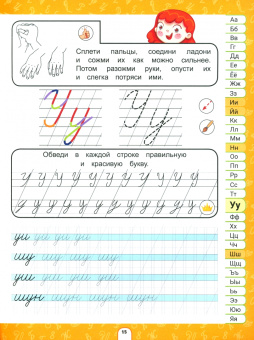 Сплети пальцы, соедини ладони
и сожми их как можно сильнее.
Потом разожми руки, опусти их
и слегка потряси ими.
Уу Уу
Обведи в каждой строке правильную
и красивую букву.
У У У У У У У У У У
у у у у у у у у у у у
уи уи уи уи
шу шу шу шу
уи уи уи уи
шун шун шун шун
Аа
Бб
Вв
Гг
Дд
Ее
Ёё
Жж
Зз
Ии
Йй
Кк
Лл
Мм
Нн
Оо
Пп
Рр
Сс
Тт
Уу
Фф
Хх
Цц
Чч
Шш
Щщ
Ъъ
Ыы
Ьь
Ээ
Юю
Яя